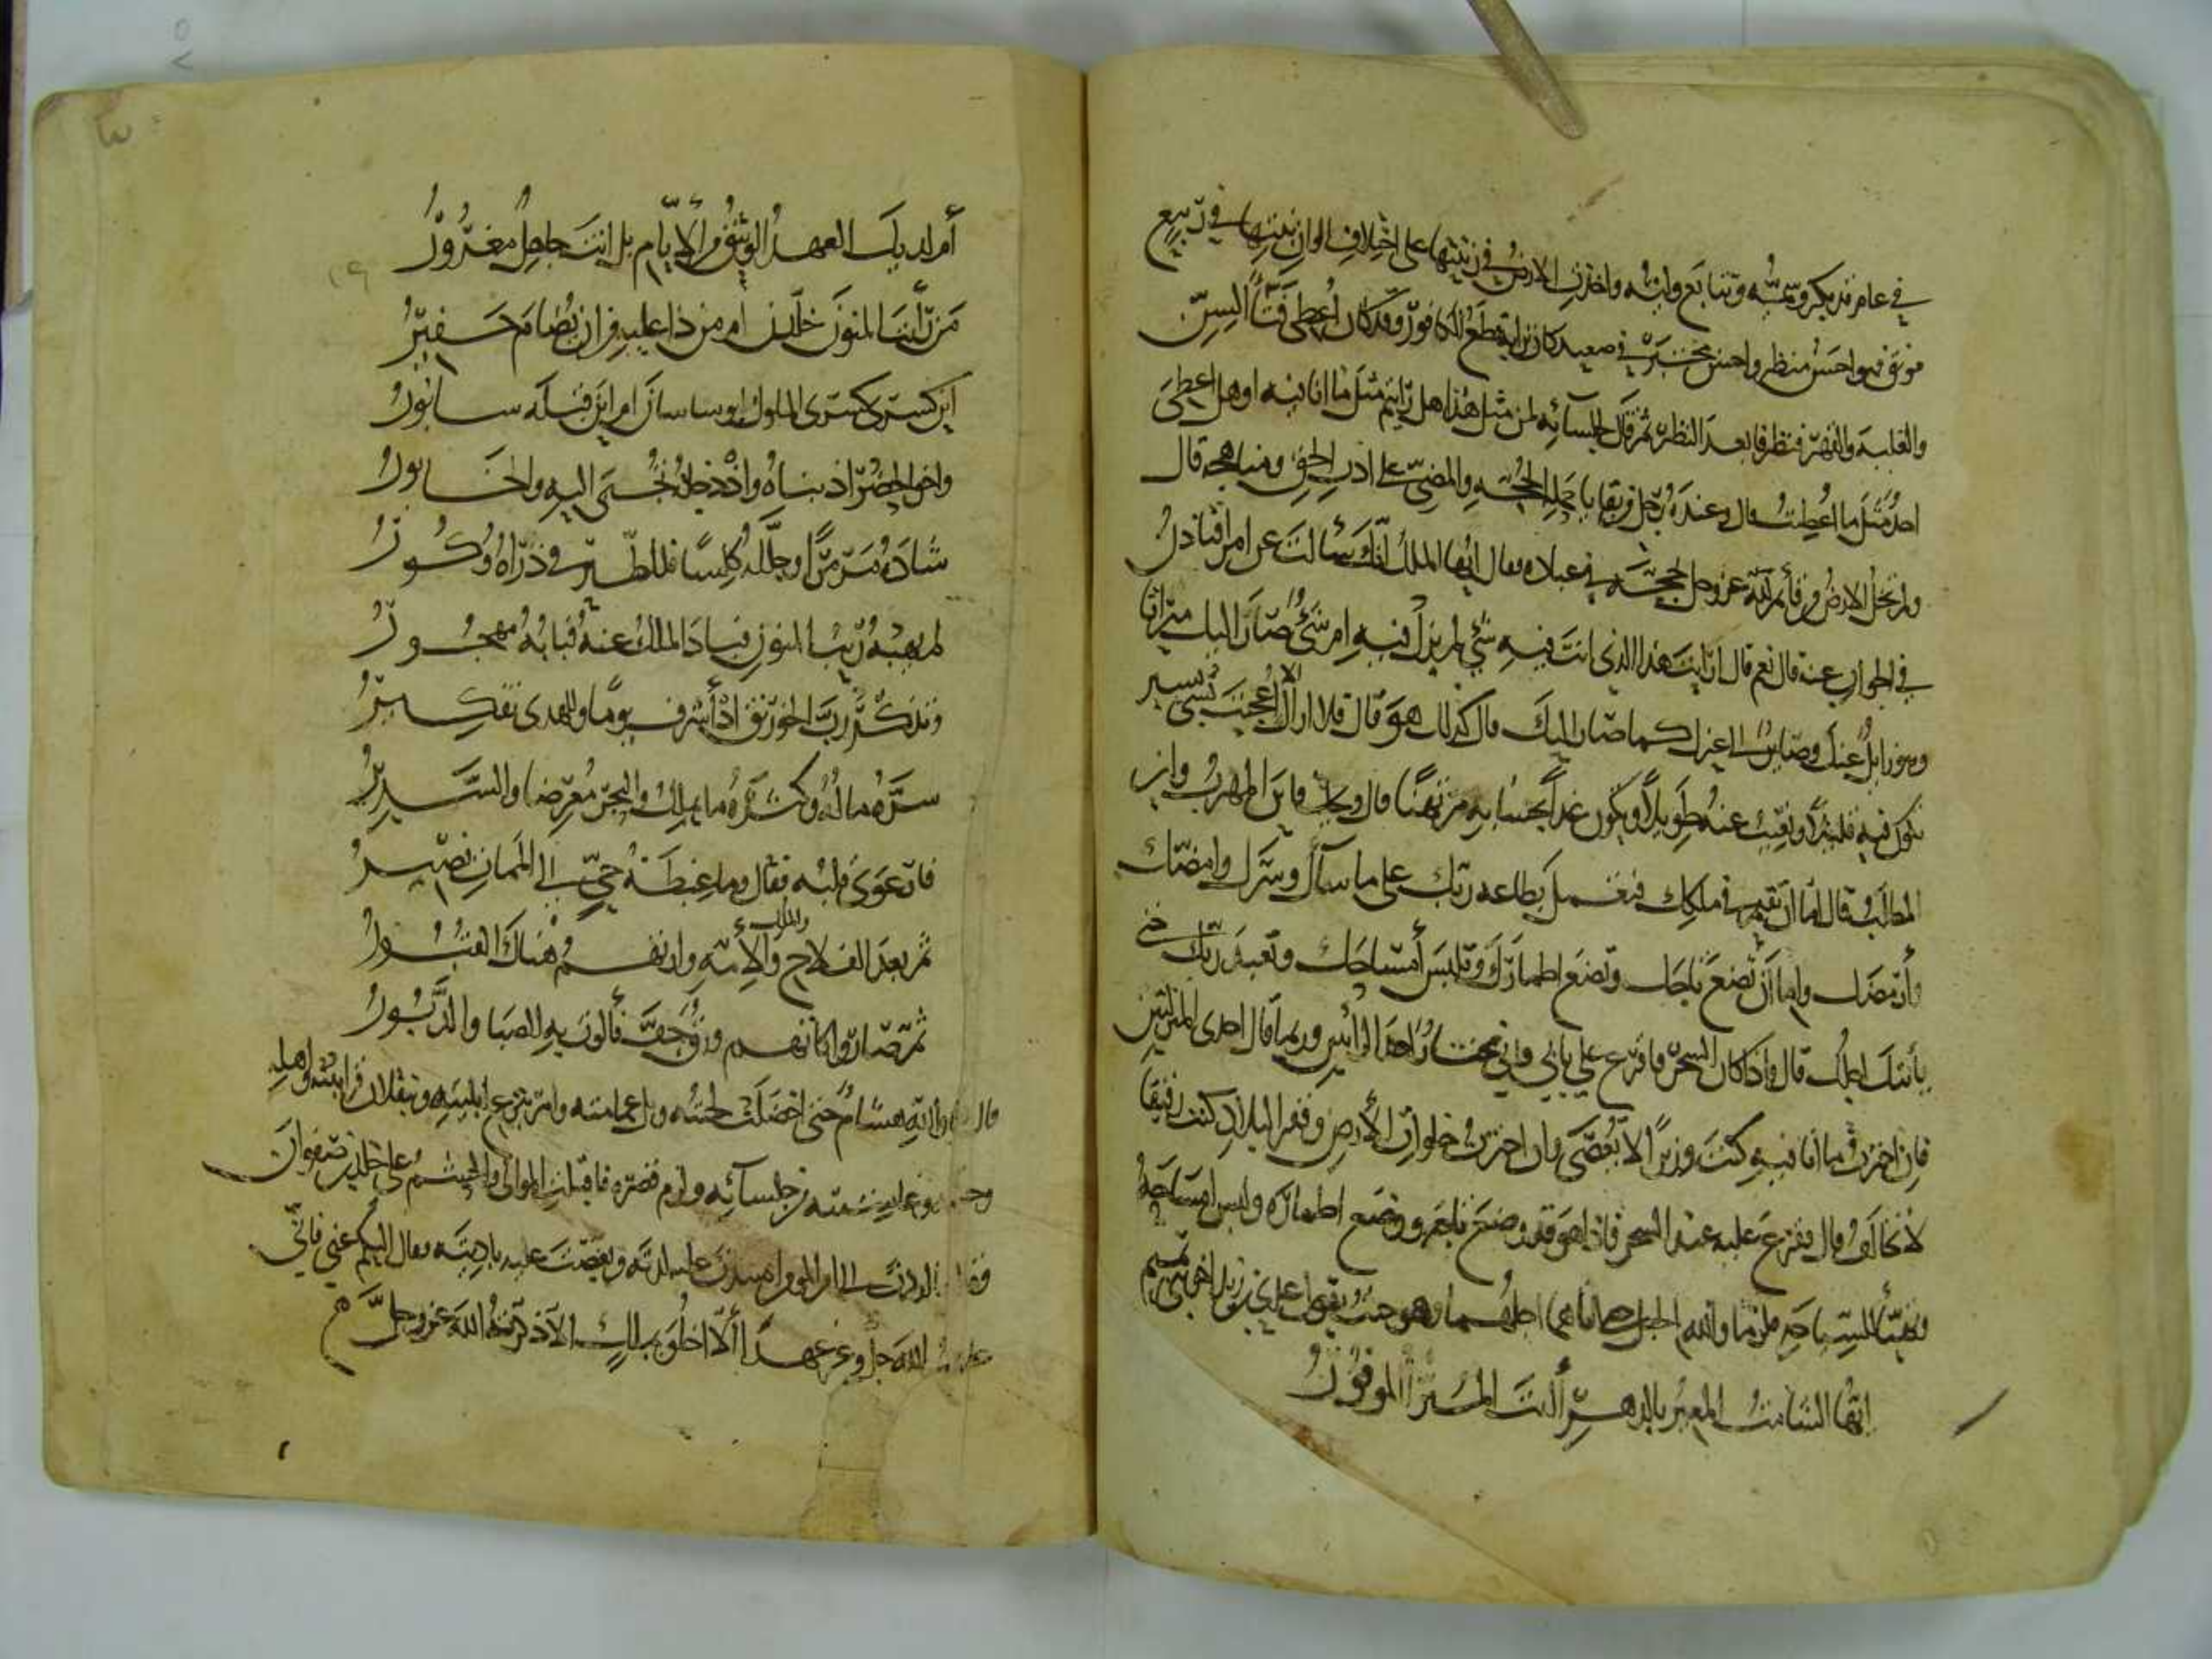 في عام قد بكر وسميه وتتابع وليه واخذت الارض في زينتها على اختلاف الوان نبتها في ربيع
مونق فهو احسن منظر واحسن مختبر في صعيد كان ترابه قطع الكافور وقد كان اعطي فتأ السن
والغلبة والقهر فنظر فابعد النظر ثم قال لجلسائه لمن مثل هذا هل رايتم مثل ما انا فيه او هل اعطي
احد مثل ما اعطيت قال وعنده رجل من بقايا حملة الحجة والمضي على ادب الحق ومنهاجه قال
ولم تخل الارض من قائم لله عز وجل بحجته في عباده فقال ايها الملك انك سالت عن امر افتاذن
في الجواب عنه قال نعم قال ارايت هذا الذي انت فيه شي لم تزل فيه ام شي صار اليك ميراثا
وهو زايل عنك وصاير الى غيرك كما صار اليك قال كذلك هو قال فلا اراك الا اعجبت بشي يسير
تكون فيه قليلا وتغيب عنه طويلا وتكون غدا بحسابه مرتهنا قال ويحك فاين المهرب واين
المطلب قال اما ان تقيم في ملكك فتعمل بطاعة ربك على ما ساك وسرك وامضك
وارمضك واما ان تضع تاجك وتضع اطمارك وتلبس امساحك وتعبد ربك حتى
ياتيك اجلك قال فاذا كان السحر فاقرع علي بابي فاني مختار احد الرائين وربما قال احدى المنزلتين
فان اخترت ما انا فيه كنت وزيرا لا تعصى وان اخترت خلوات الارض وقفر البلاد كنت رفيقا
لا تخالف قال فقرع عليه عند السحر فاذا هو قد وضع تاجه ووضع اطماره ولبس امساحه
وتهيأ للسياحة فلزما والله الجبل حتى اتاهما اجلهما وهو حيث يقول عدي بن زيد اخو بني تميم
ايها الشامت المعير بالدهر أانت المبرأ الموفور
أم لديك العهد الوثيق من الأيام بل انت جاهل مغرور
من رأيت المنون خلدن ام من ذا عليه من ان يضام خفير
اين كسرى كسرى الملوك ابو ساسان ام اين قبله سابور
واخو الحضر اذ بناه واذ دجلة تجبى اليه والخابور
شاده مرمرا وجلله كلسا فللطير في ذراه وكور
لم يهبه ريب المنون فباد الملك عنه فبابه مهجور
وتذكر رب الخورنق اذ أشرف يوما وللهدى تفكير
سره ماله وكثرة ما يملك والبحر معرضا والسدير
فارعوى قلبه فقال وما غبطة حي الى الممات يصير
ثم بعد الفلاح والملك والأمة وارتهم هناك القبور
ثم صاروا كانهم ورق جف فألوت به الصبا والدبور
قال والله هشام حتى اخضلت لحيته وبل عمامته وامر بنزع ابنيته وبنقلان قرابته واهله
وحشمه من جلسائه ولزم قصره فاقبلت الموالي والحشم على خالد بن صفوان
الى امير المومنين عليه لذته ونغصت عليه باديته فقال اليكم عني فاني
عاهدت الله جل وعز عهدا ألا اخلو بملك الا ذكرته الله عز وجل